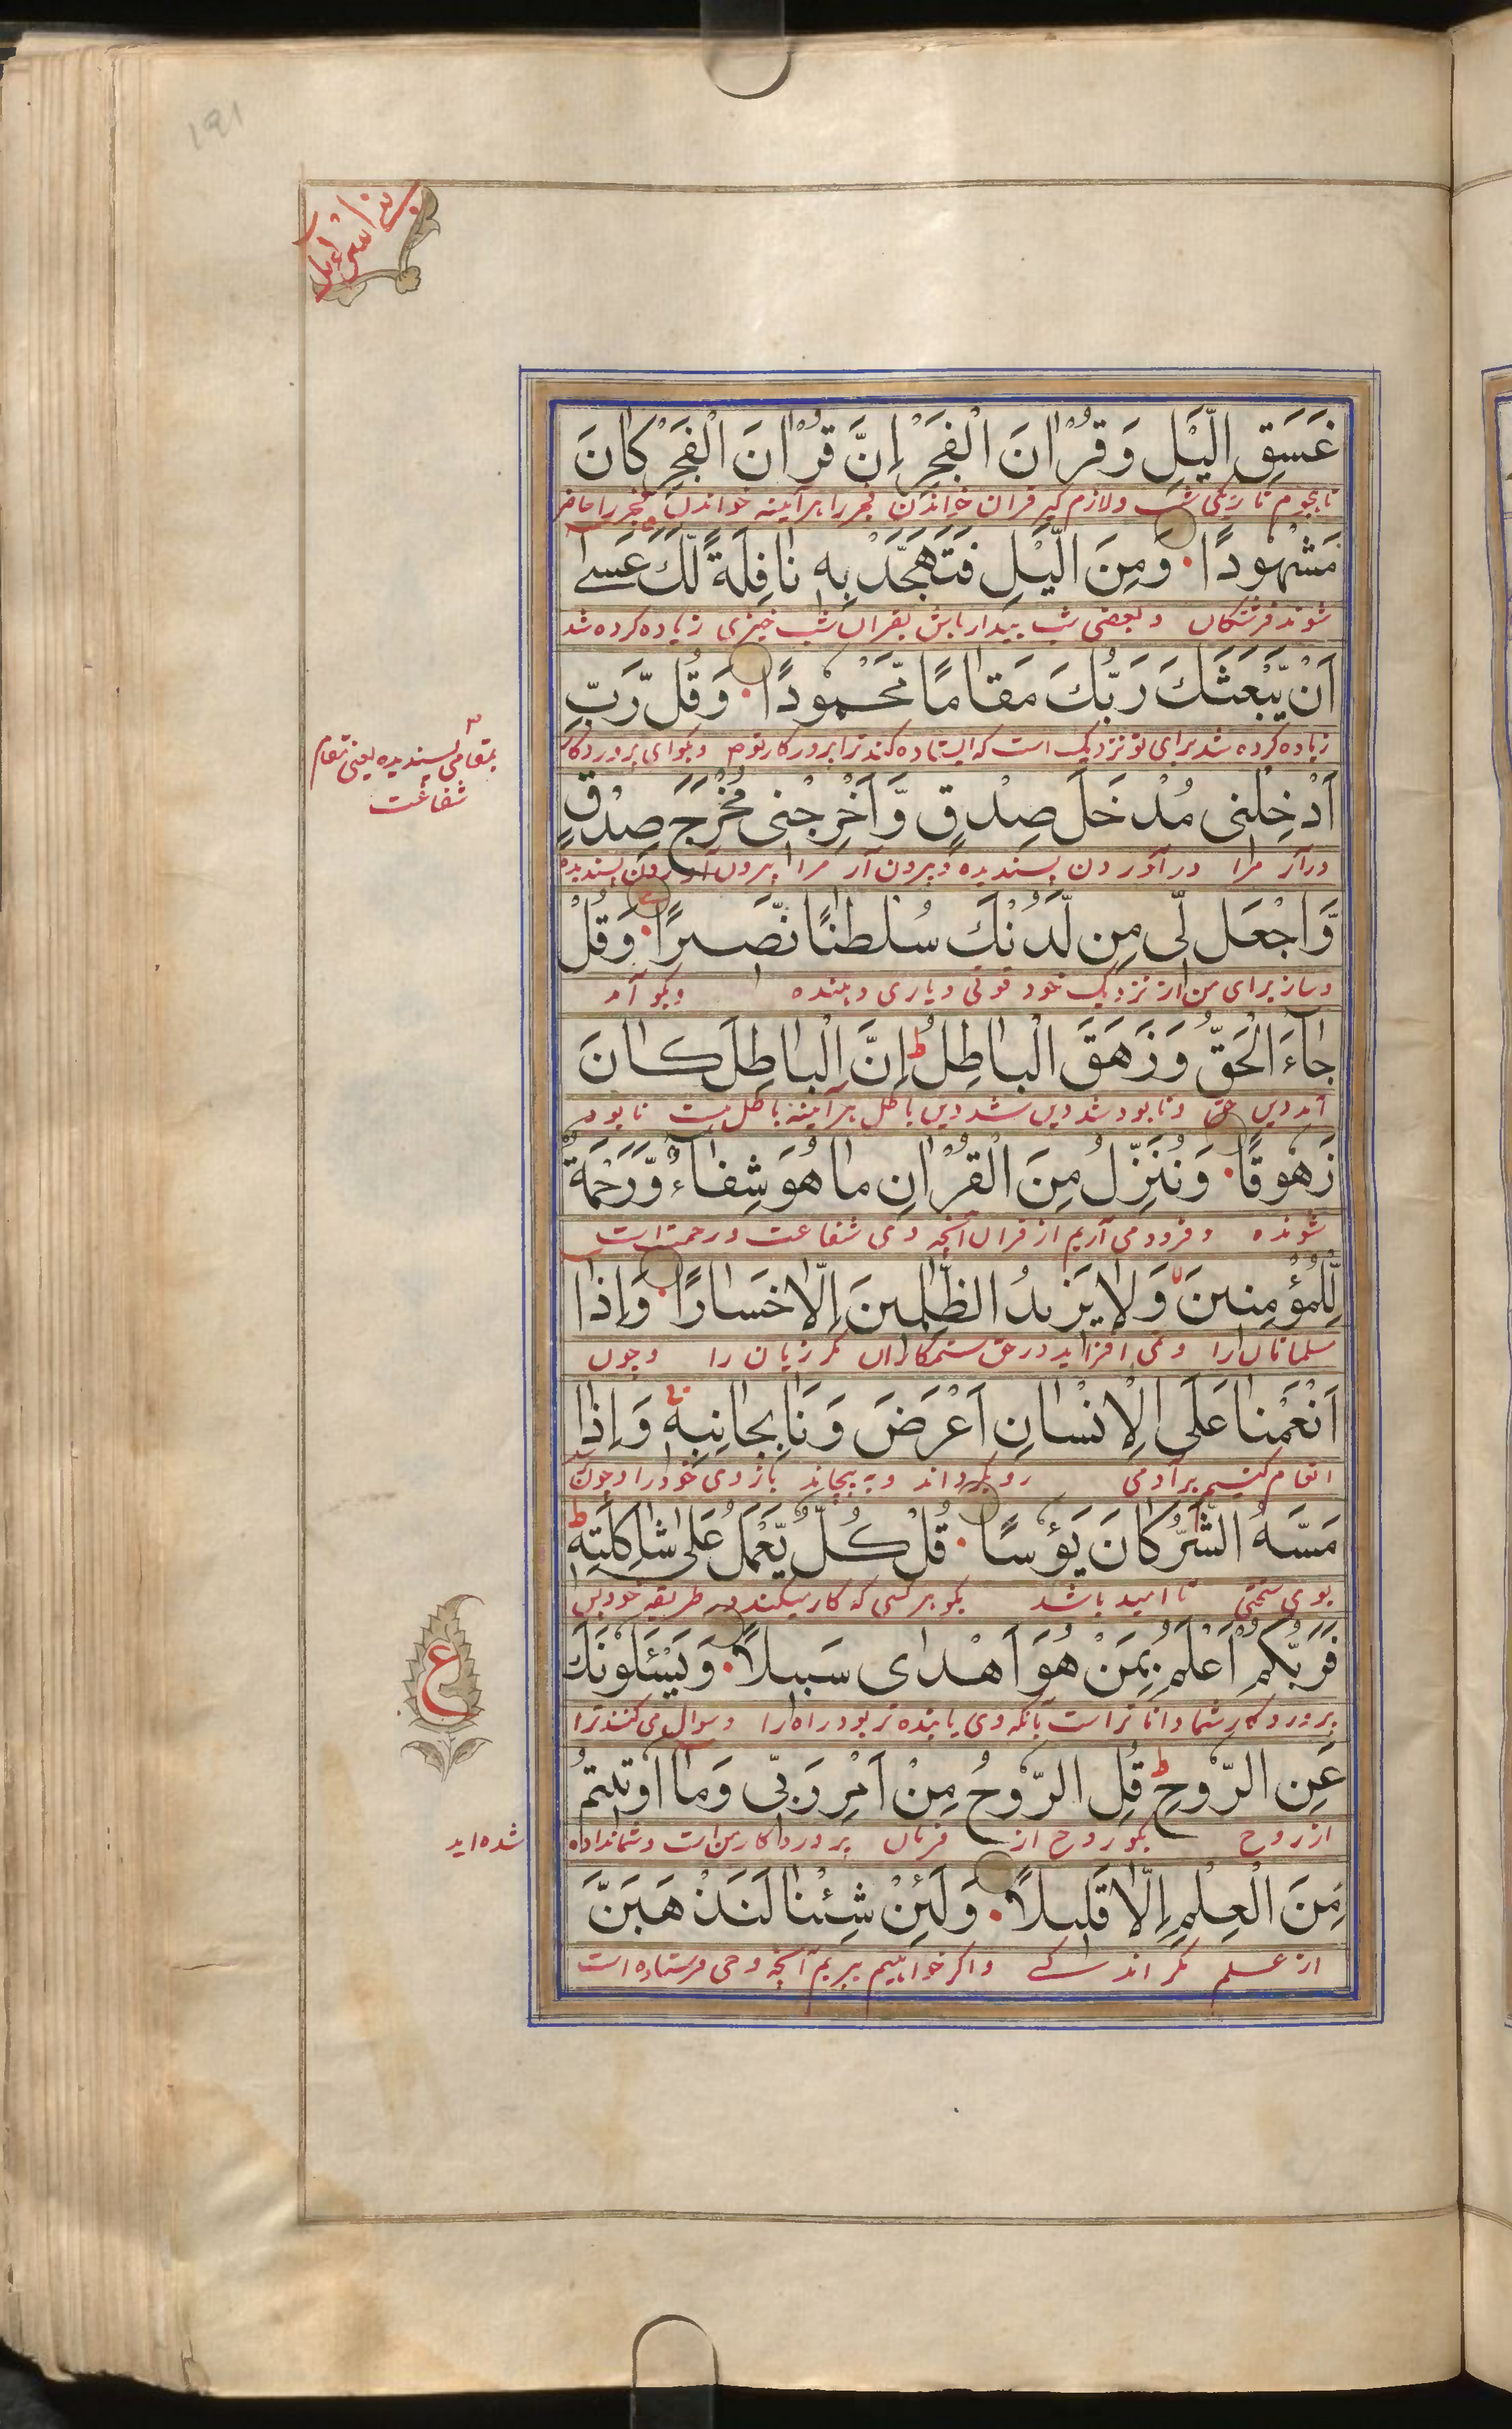 191
بنی اسرائیل
غَسَقِ الَّيْلِ وَقُرْاٰنَ الْفَجْرِ اِنَّ قُرْاٰنَ الْفَجْرِ كَانَ
تا هجوم تاریکی شب ولازم گیر قران خواندن فجر را هر آئینه خواندن فجر را حاضر
مَشْهُودًا وَمِنَ الَّيْلِ فَتَهَجَّدْ بِهٖ نَافِلَةً لَّكَ عَسٰى
شوند فرشتگان و بعضی شب بیدار باش بقران شب خیزی زیاده کرده شد
اَنْ يَّبْعَثَكَ رَبُّكَ مَقَامًا مَّحْمُودًا وَقُلْ رَّبِّ
زیاده کرده شد برای تو نزدیک است که ایستاده کند ترا پروردگار تو وبگو ای پروردگار
بمقامی پسندیده یعنی مقام
شفاعت
اَدْخِلْنِى مُدْخَلَ صِدْقٍ وَّاَخْرِجْنِى مُخْرَجَ صِدْقٍ
درآر مرا درآوردن پسندیده و بیرون آر مرا بیرون آوردن پسندیده
وَّاجْعَل لِّى مِن لَّدُنْكَ سُلْطٰنًا نَّصِيرًا وَقُلْ
وساز برای من از نزدیک خود قوتی ویاری دهنده وبگو آمد
جَاءَ الْحَقُّ وَزَهَقَ الْبَاطِلُ ط اِنَّ الْبَاطِلَ كَانَ
آمد دین حق ونابود شد دین باطل هر آئینه باطل هست نابود
زَهُوقًا وَنُنَزِّلُ مِنَ الْقُرْاٰنِ مَا هُوَ شِفَاءٌ وَّرَحْمَةٌ
شونده وفرود می آریم از قران آنچه وی شفاعت ورحمت است
لِّلْمُؤْمِنِينَ وَلَا يَزِيدُ الظّٰلِمِينَ اِلَّا خَسَارًا وَاِذَا
مسلمانان را ونمی افزاید در حق ستمکاران مگر زیان را وچون
اَنْعَمْنَا عَلَى الْاِنْسَانِ اَعْرَضَ وَنَاٰ بِجَانِبِهٖ وَاِذَا
انعام کنیم بر آدمی رو بگرداند و به پیچاند بازوی خود را وچون
مَسَّهُ الشَّرُّ كَانَ يَؤُسًا قُلْ كُلٌّ يَّعْمَلُ عَلٰى شَاكِلَتِهٖ ط
بوی سختی نا امید باشد بگو هر کسی که کار میکند بر طریقه خود پس
فَرَبُّكُمْ اَعْلَمُ بِمَنْ هُوَ اَهْدٰى سَبِيلًا وَيَسْـَٔلُونَكَ
پروردگار شما دانا تر است بآنکه وی یابنده تر بود راه را وسوال می کنند ترا
ع
عَنِ الرُّوحِ ط قُلِ الرُّوحُ مِنْ اَمْرِ رَبِّى وَمَا اُوتِيتُمْ
از روح بگو روح از فرمان پروردگار من است وشما نداده
شده اید
مِنَ الْعِلْمِ اِلَّا قَلِيلًا وَلَئِنْ شِئْنَا لَنَذْهَبَنَّ
از علم مگر اندکے واگر خواهیم ببریم آنچه وحی فرستاده است